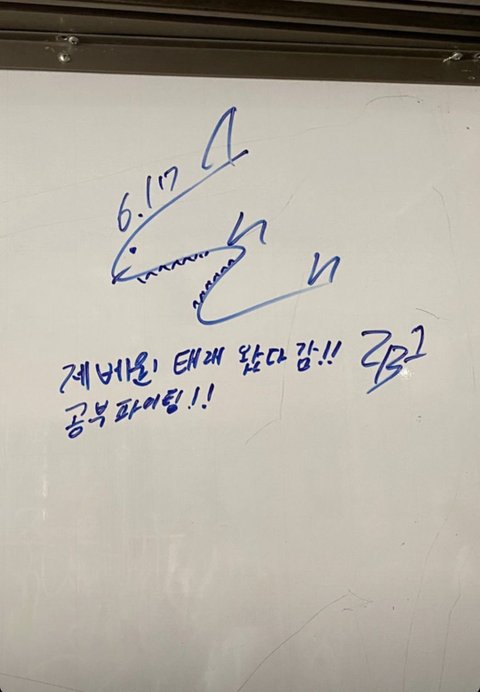 6.17
제베원! 태래 왔다감!!
공부 파이팅!!